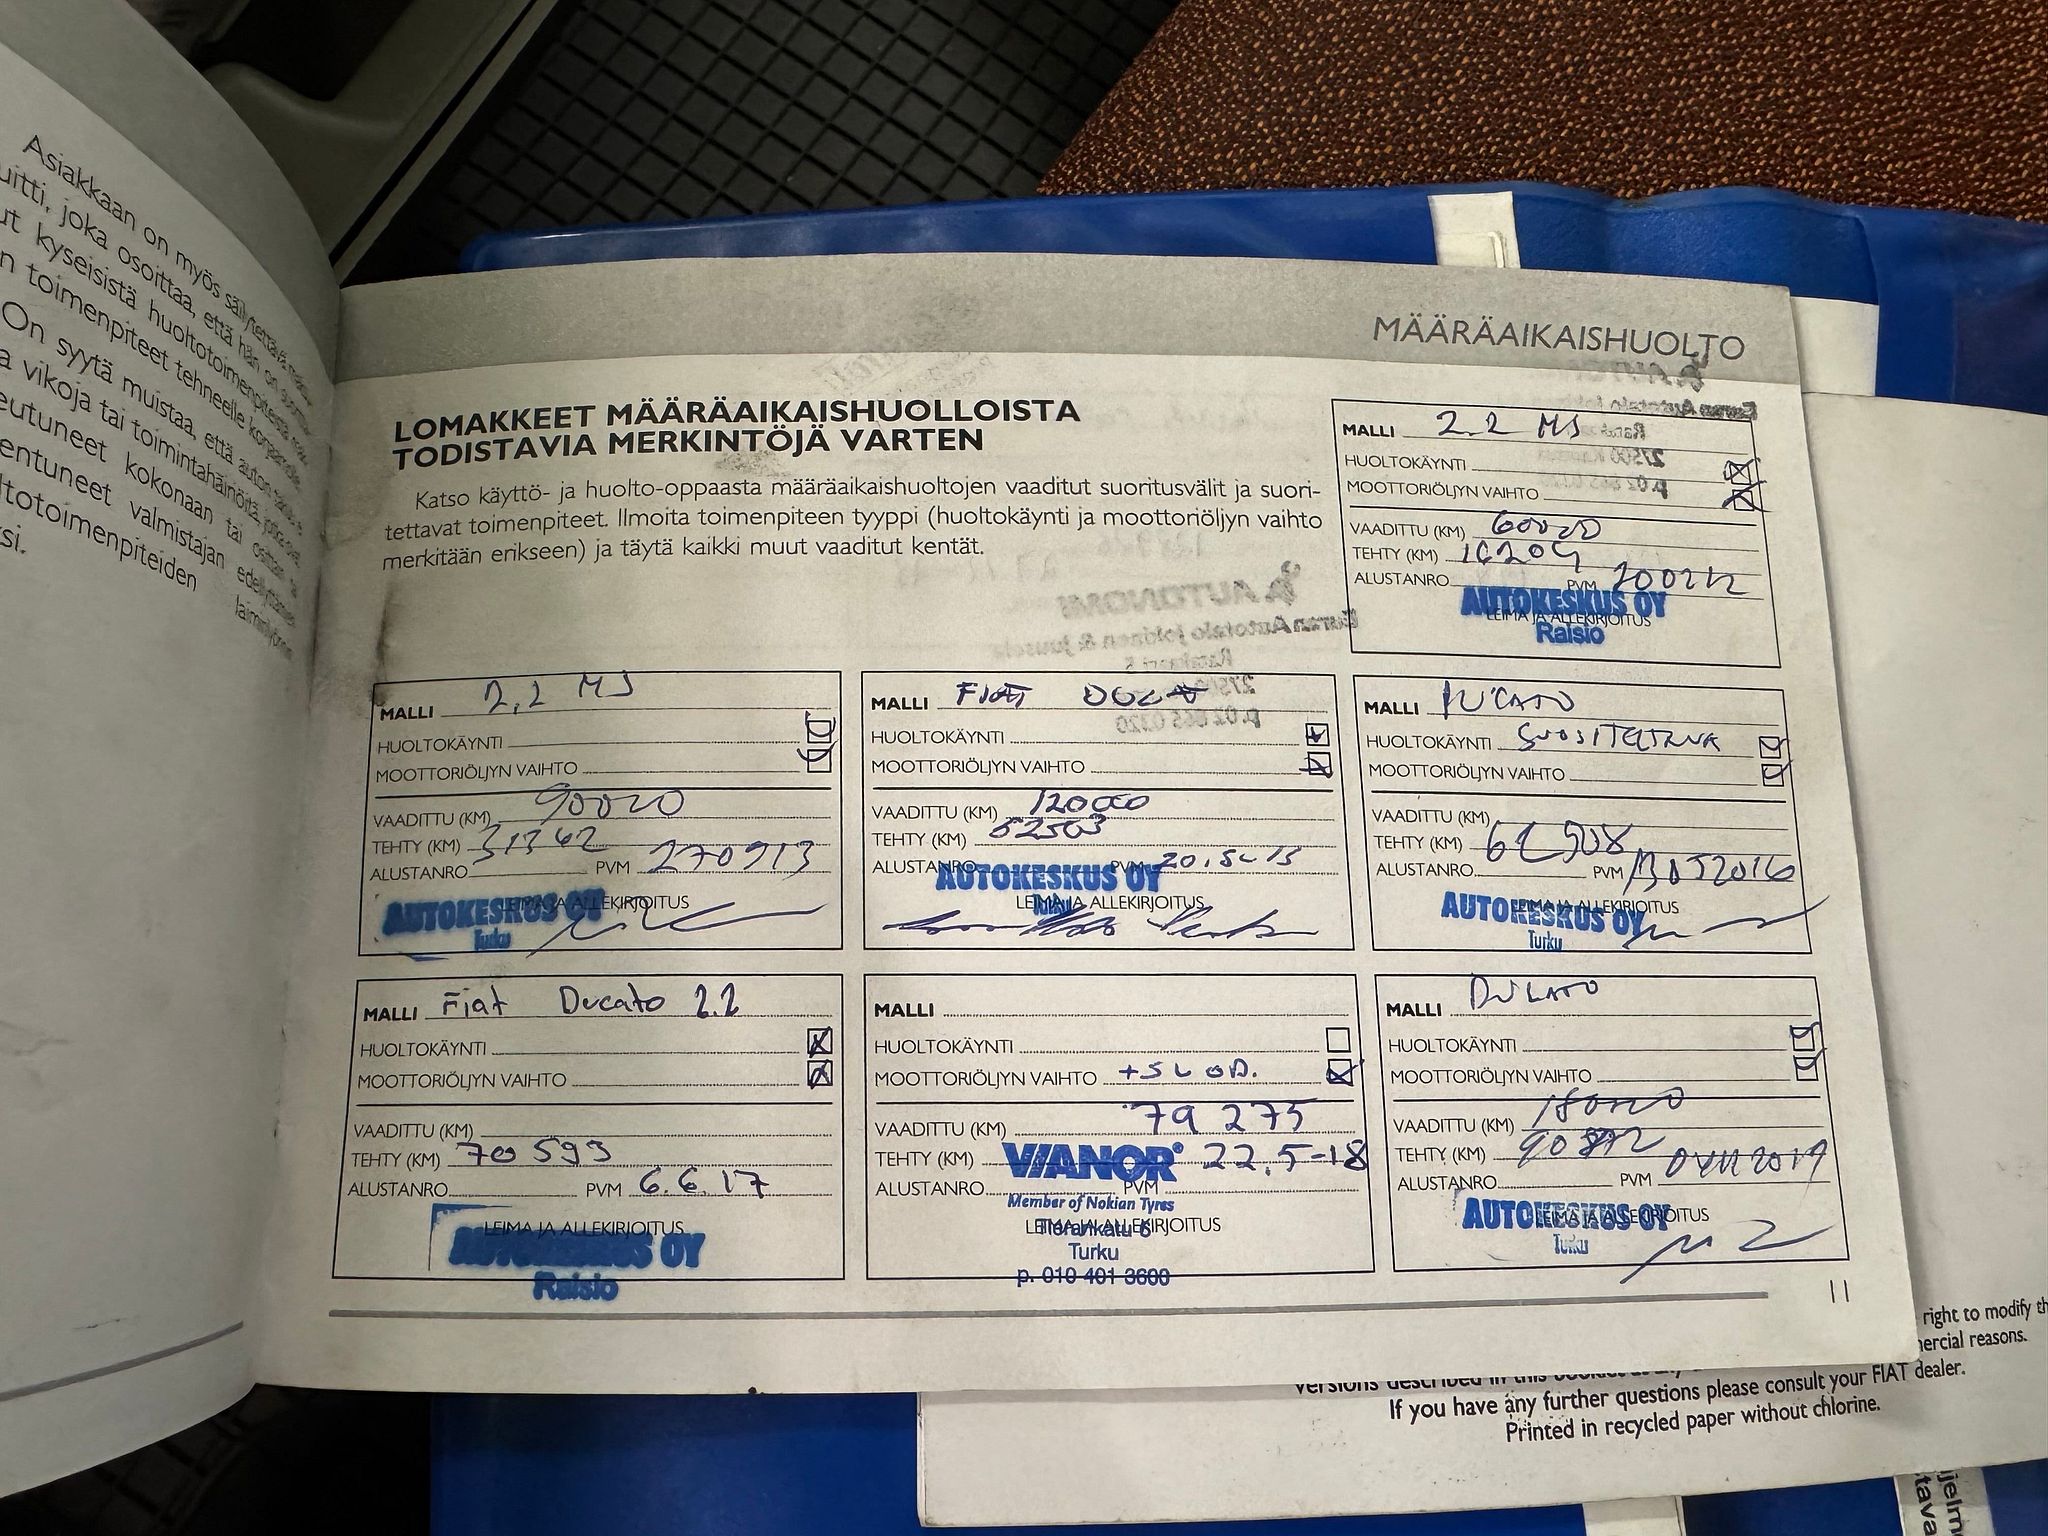 Asiakkaan on myös säilytettävä
uitti, joka osoittaa, että hän on
ut kyseisistä huoltotoimenpiteistä
n toimenpiteet tehneelle
On syytä muistaa, että auton
a vikoja tai toimintahäiriöitä, jotka ovat
eutuneet kokonaan tai osittain
entuneet valmistajan
ltotoimenpiteiden laiminlyönnin
si.
MÄÄRÄAIKAISHUOLTO
LOMAKKEET MÄÄRÄAIKAISHUOLLOISTA
TODISTAVIA MERKINTÖJÄ VARTEN
Katso käyttö- ja huolto-oppaasta määräaikaishuoltojen vaaditut suoritusvälit ja suori-
tettavat toimenpiteet. Ilmoita toimenpiteen tyyppi (huoltokäynti ja moottoriöljyn vaihto
merkitään erikseen) ja täytä kaikki muut vaaditut kentät.
MALLI 2.2 MJ
HUOLTOKÄYNTI
MOOTTORIÖLJYN VAIHTO
VAADITTU (KM) 60000
TEHTY (KM) 16209
ALUSTANRO PVM
AUTOKESKUS OY
LEIMA JA ALLEKIRJOITUS
Raisio
MALLI 2,2 MJ
HUOLTOKÄYNTI
MOOTTORIÖLJYN VAIHTO
VAADITTU (KM) 90000
TEHTY (KM) 31362
ALUSTANRO PVM 270913
LEIMA JA ALLEKIRJOITUS
AUTOKESKUS OY
Turku
MALLI FIAT
HUOLTOKÄYNTI
MOOTTORIÖLJYN VAIHTO
VAADITTU (KM) 120000
TEHTY (KM) 52503
ALUSTANRO PVM
AUTOKESKUS OY
LEIMA JA ALLEKIRJOITUS
Turku
MALLI DUCATO
HUOLTOKÄYNTI SUOSITELTAVA
MOOTTORIÖLJYN VAIHTO
VAADITTU (KM)
TEHTY (KM)
ALUSTANRO PVM
LEIMA JA ALLEKIRJOITUS
AUTOKESKUS OY
Turku
MALLI Fiat Ducato 2.2
HUOLTOKÄYNTI
MOOTTORIÖLJYN VAIHTO
VAADITTU (KM)
TEHTY (KM) 70 593
ALUSTANRO PVM 6.6.17
LEIMA JA ALLEKIRJOITUS
AUTOKESKUS OY
Raisio
MALLI
HUOLTOKÄYNTI
MOOTTORIÖLJYN VAIHTO + SUOD.
VAADITTU (KM) 79 275
TEHTY (KM) VIANOR 22.5-18
ALUSTANRO PVM
Member of Nokian Tyres
LEIMA JA ALLEKIRJOITUS
Tierankatu 6
Turku
p. 010 401 3600
MALLI DUCATO
HUOLTOKÄYNTI
MOOTTORIÖLJYN VAIHTO
VAADITTU (KM) 180000
TEHTY (KM)
ALUSTANRO PVM
LEIMA JA ALLEKIRJOITUS
AUTOKESKUS OY
Turku
11
right to modify th
ercial reasons.
versions described in this booklet at any
If you have any further questions please consult your FIAT dealer.
Printed in recycled paper without chlorine.